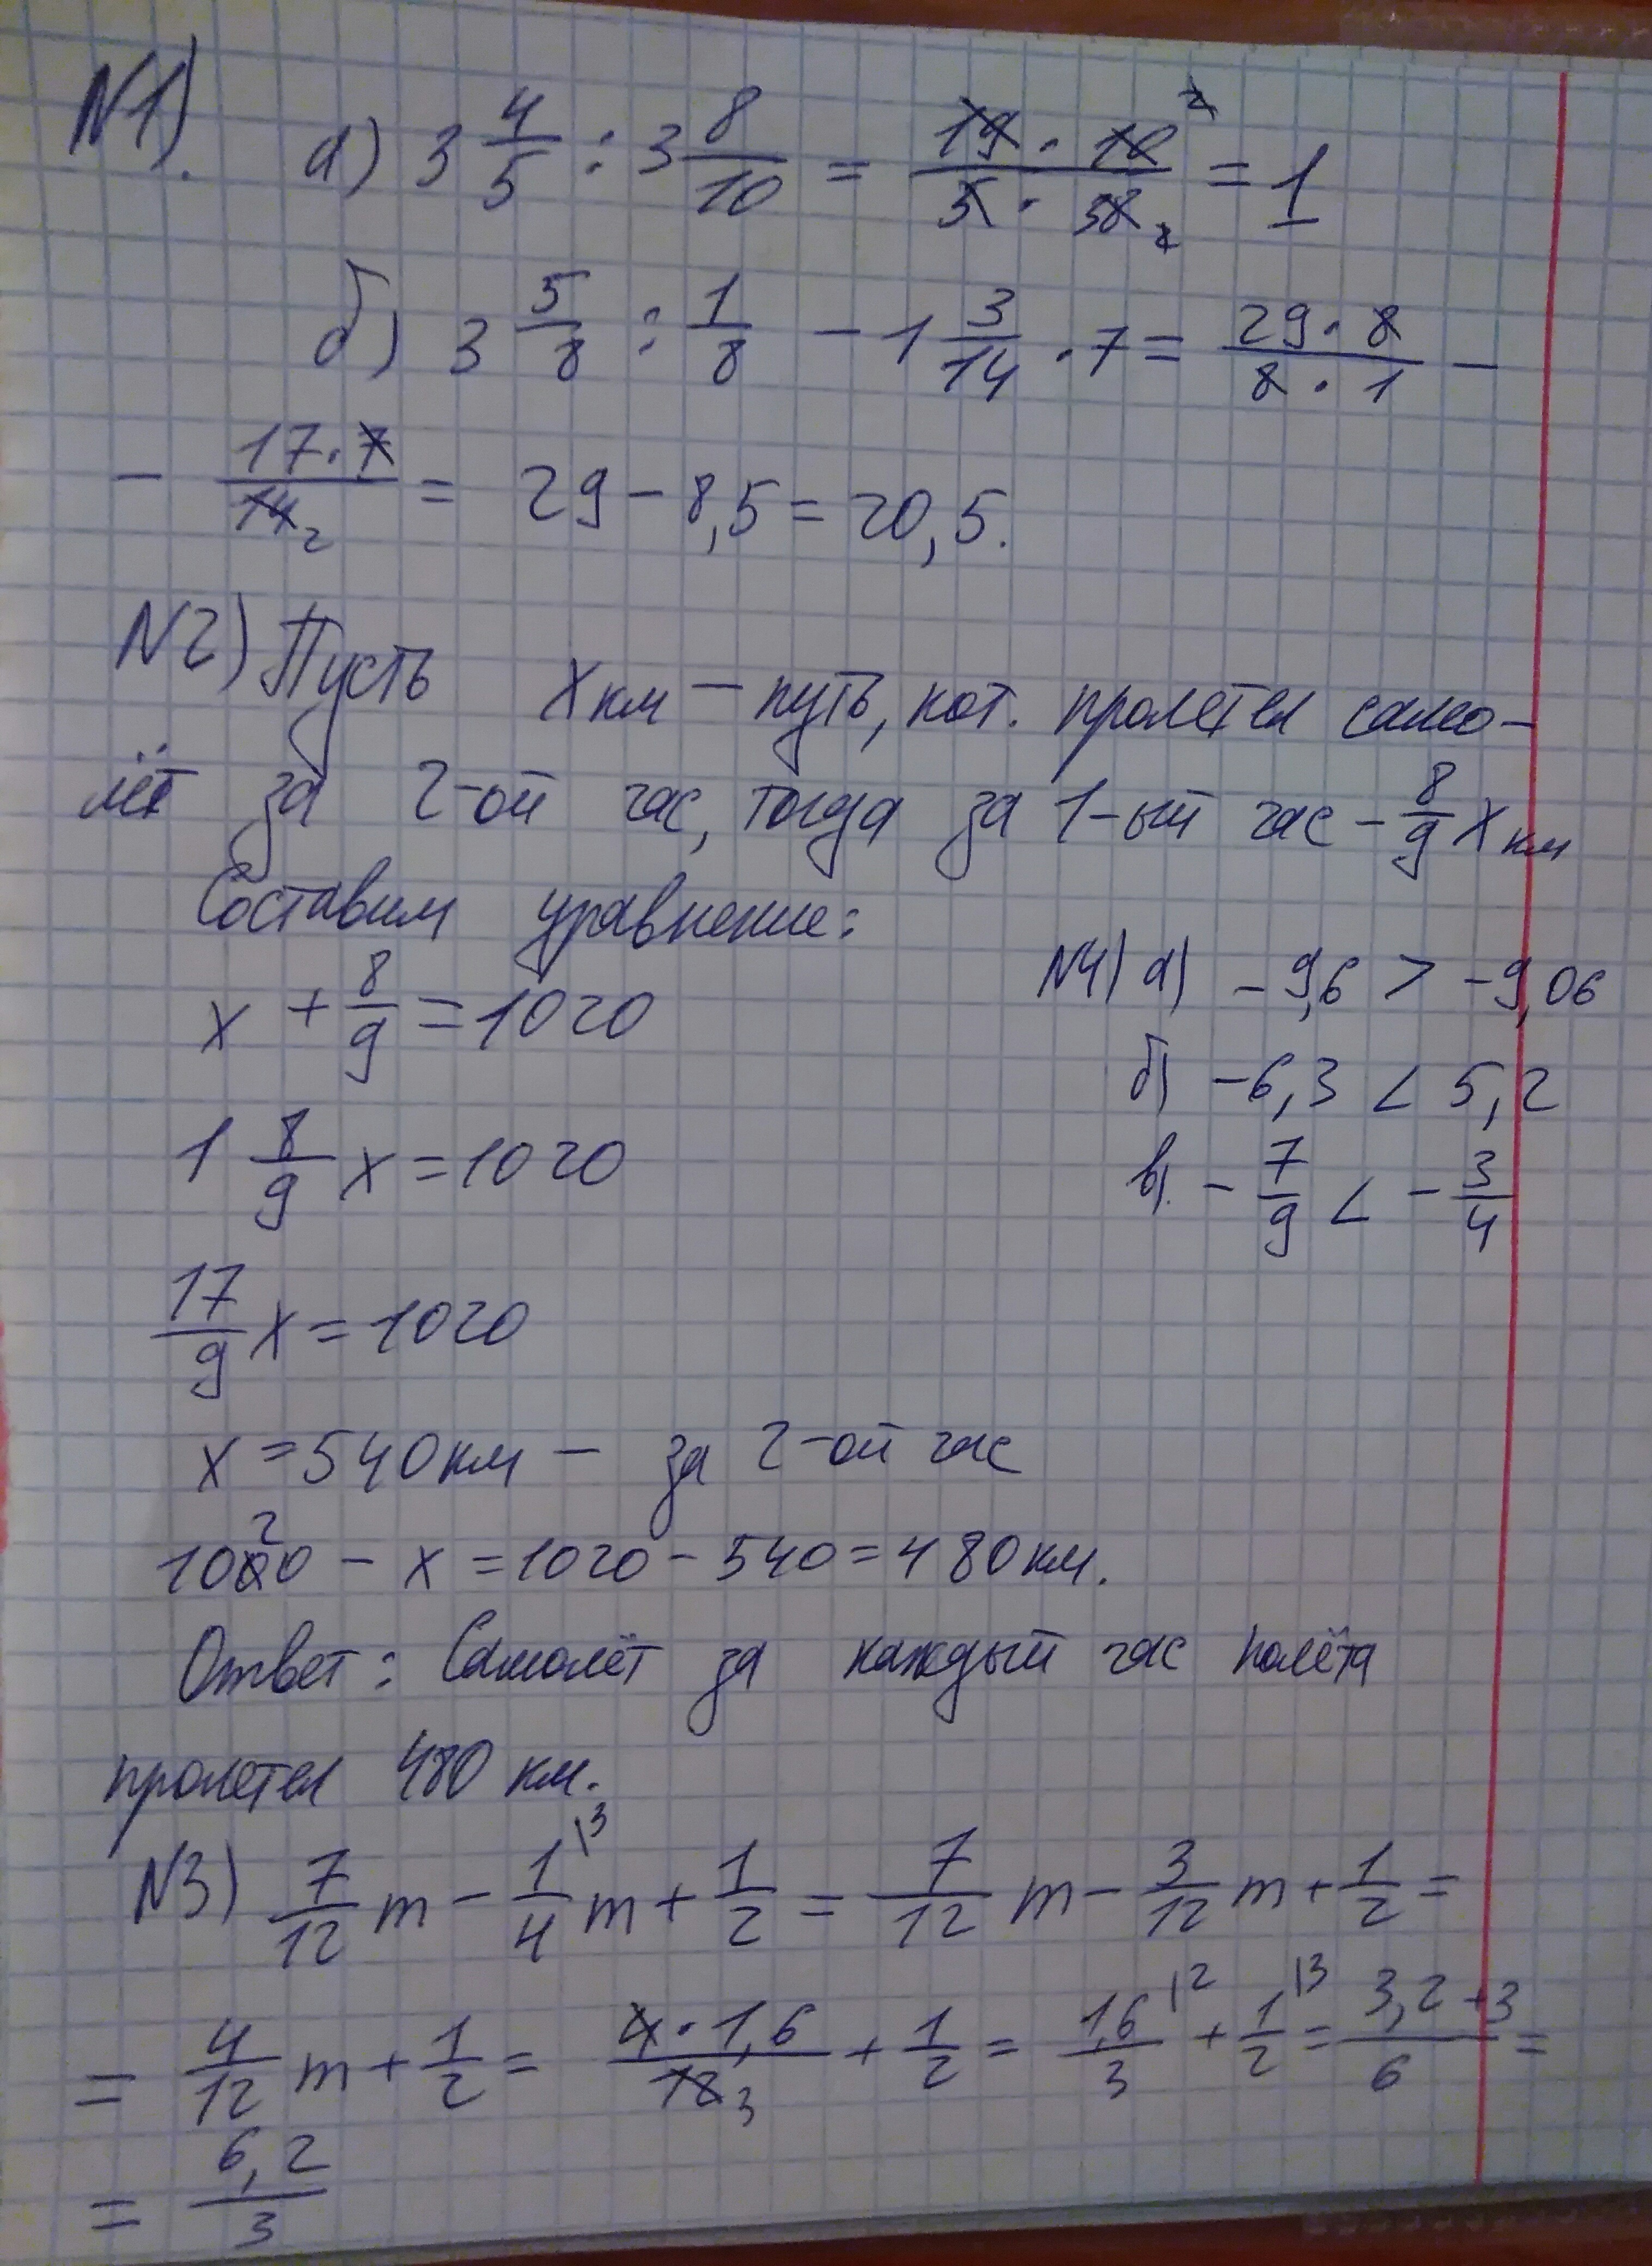 N1). а) 3 4/5 : 3 8/10 = 19 · 10 2 / 5 · 38 2 = 1
б) 3 5/8 : 1/8 - 1 3/14 · 7 = 29 · 8 / 8 · 1 -
- 17 · 7 / 14 2 = 29 - 8,5 = 20,5.
N2) Пусть х км - путь, кот. пролетел само-
лёт за 2-ой час, тогда за 1-ый час - 8/9 х км
Составим уравнение:
х + 8/9 = 1020
1 8/9 х = 1020
17/9 х = 1020
х = 540 км - за 2-ой час
1020 - х = 1020 - 540 = 480 км.
Ответ: Самолёт за каждый час полёта
пролетел 480 км.
N4) а) -9,6 > -9,06
б) -6,3 < 5,2
в). -7/9 < -3/4
N3) 7/12 m - 1/4 |3 m + 1/2 = 7/12 m - 3/12 m + 1/2 =
= 4/12 m + 1/2 = 4 · 1,6 / 12 3 + 1/2 = 1,6/3 |2 + 1/2 |3 = 3,2 + 3 / 6 =
= 6,2/3